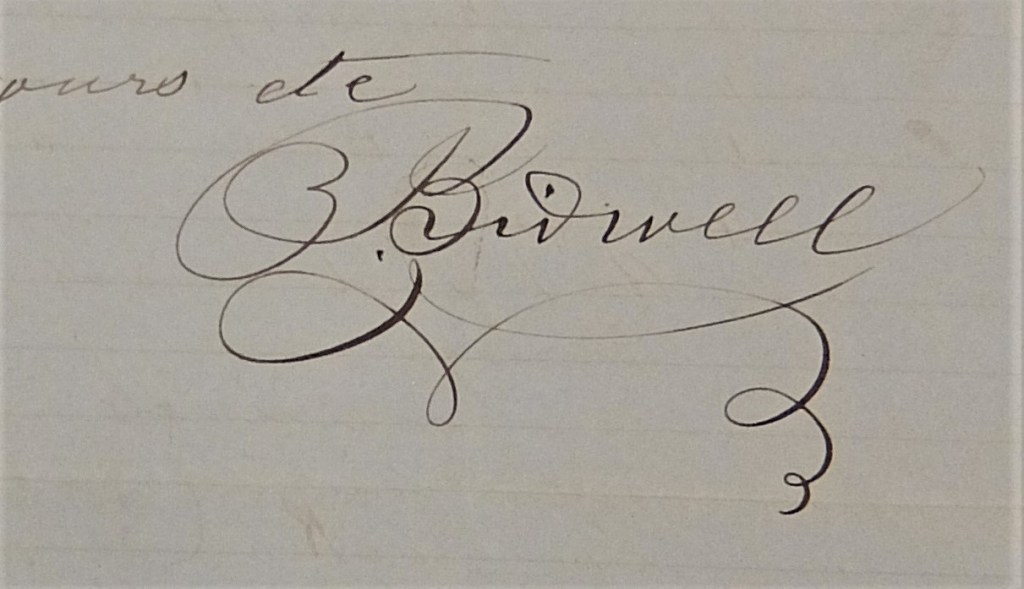 ours etc
Bidwell